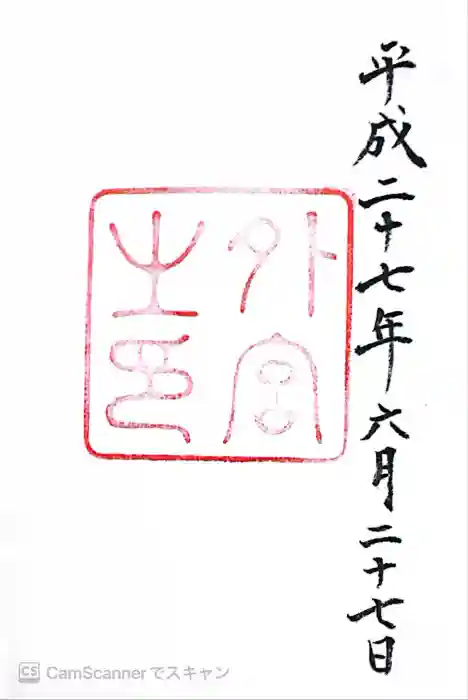 平成二十七年六月二十七日
外宮
之印
CS CamScannerでスキャン